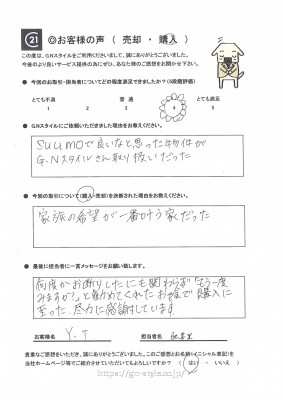 21 ◎お客様の声 ( 売却 ・ 購入 )
この度は、GNスタイルをご利用くださいまして、誠にありがとうございました。
今後のより良いサービス提供の為にぜひ、あなた様のご感想をお聞かせ下さい。
● 今回のお取引・担当者についてどの程度満足できましたか?(5段階評価)
とても不満 普通 とても満足
1 2 3 4 5
● GNスタイルにご依頼いただきました理由をお教えください。
SUUMOで良いなと思った物件が
G.Nスタイルさん取り扱いだった
● 今回の取引について(購入・売却)を決断された理由をお教えください。
家族の希望が一番叶う家だった
● 最後に担当者に一言メッセージをお願い致します。
何度かお断りしたにも関わらず「もう一度
みますか?」と勧めてくれたお陰で購入に
至った。尽力に感謝しています
お客様名 Y.T 担当者名
貴重なご感想をいただき、誠にありがとうございました。このご感想とお名前(イニシャル表記)を
当社ホームページ等でご紹介させていただいてもよろしいでしょうか? ( はい ・ いいえ )
https://gn-style.co.jp/